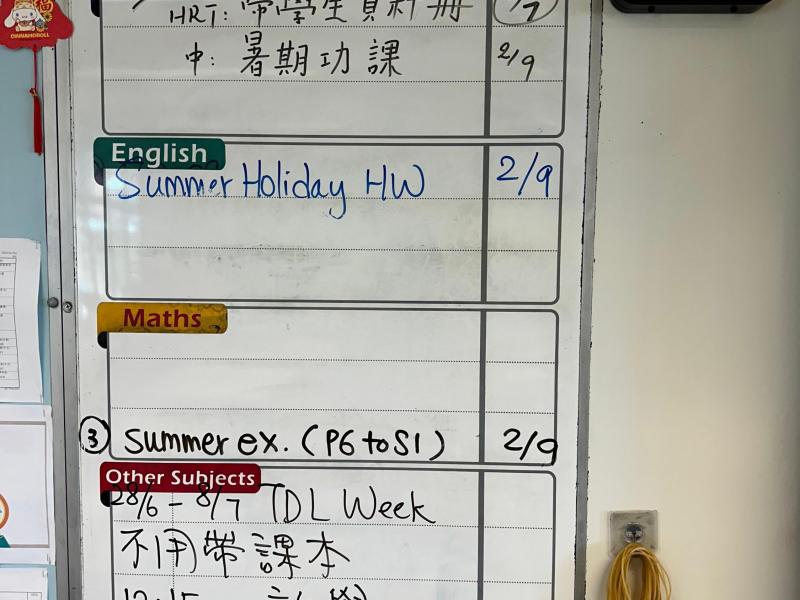 福
CINNAMOROLL
HRT: 帶學生資料冊
中: 暑期功課 2/9
English
Summer Holiday HW 2/9
Maths
③ Summer ex. (P6 to S1) 2/9
Other Subjects
28/6 - 8/7 TDL Week
不用帶課本